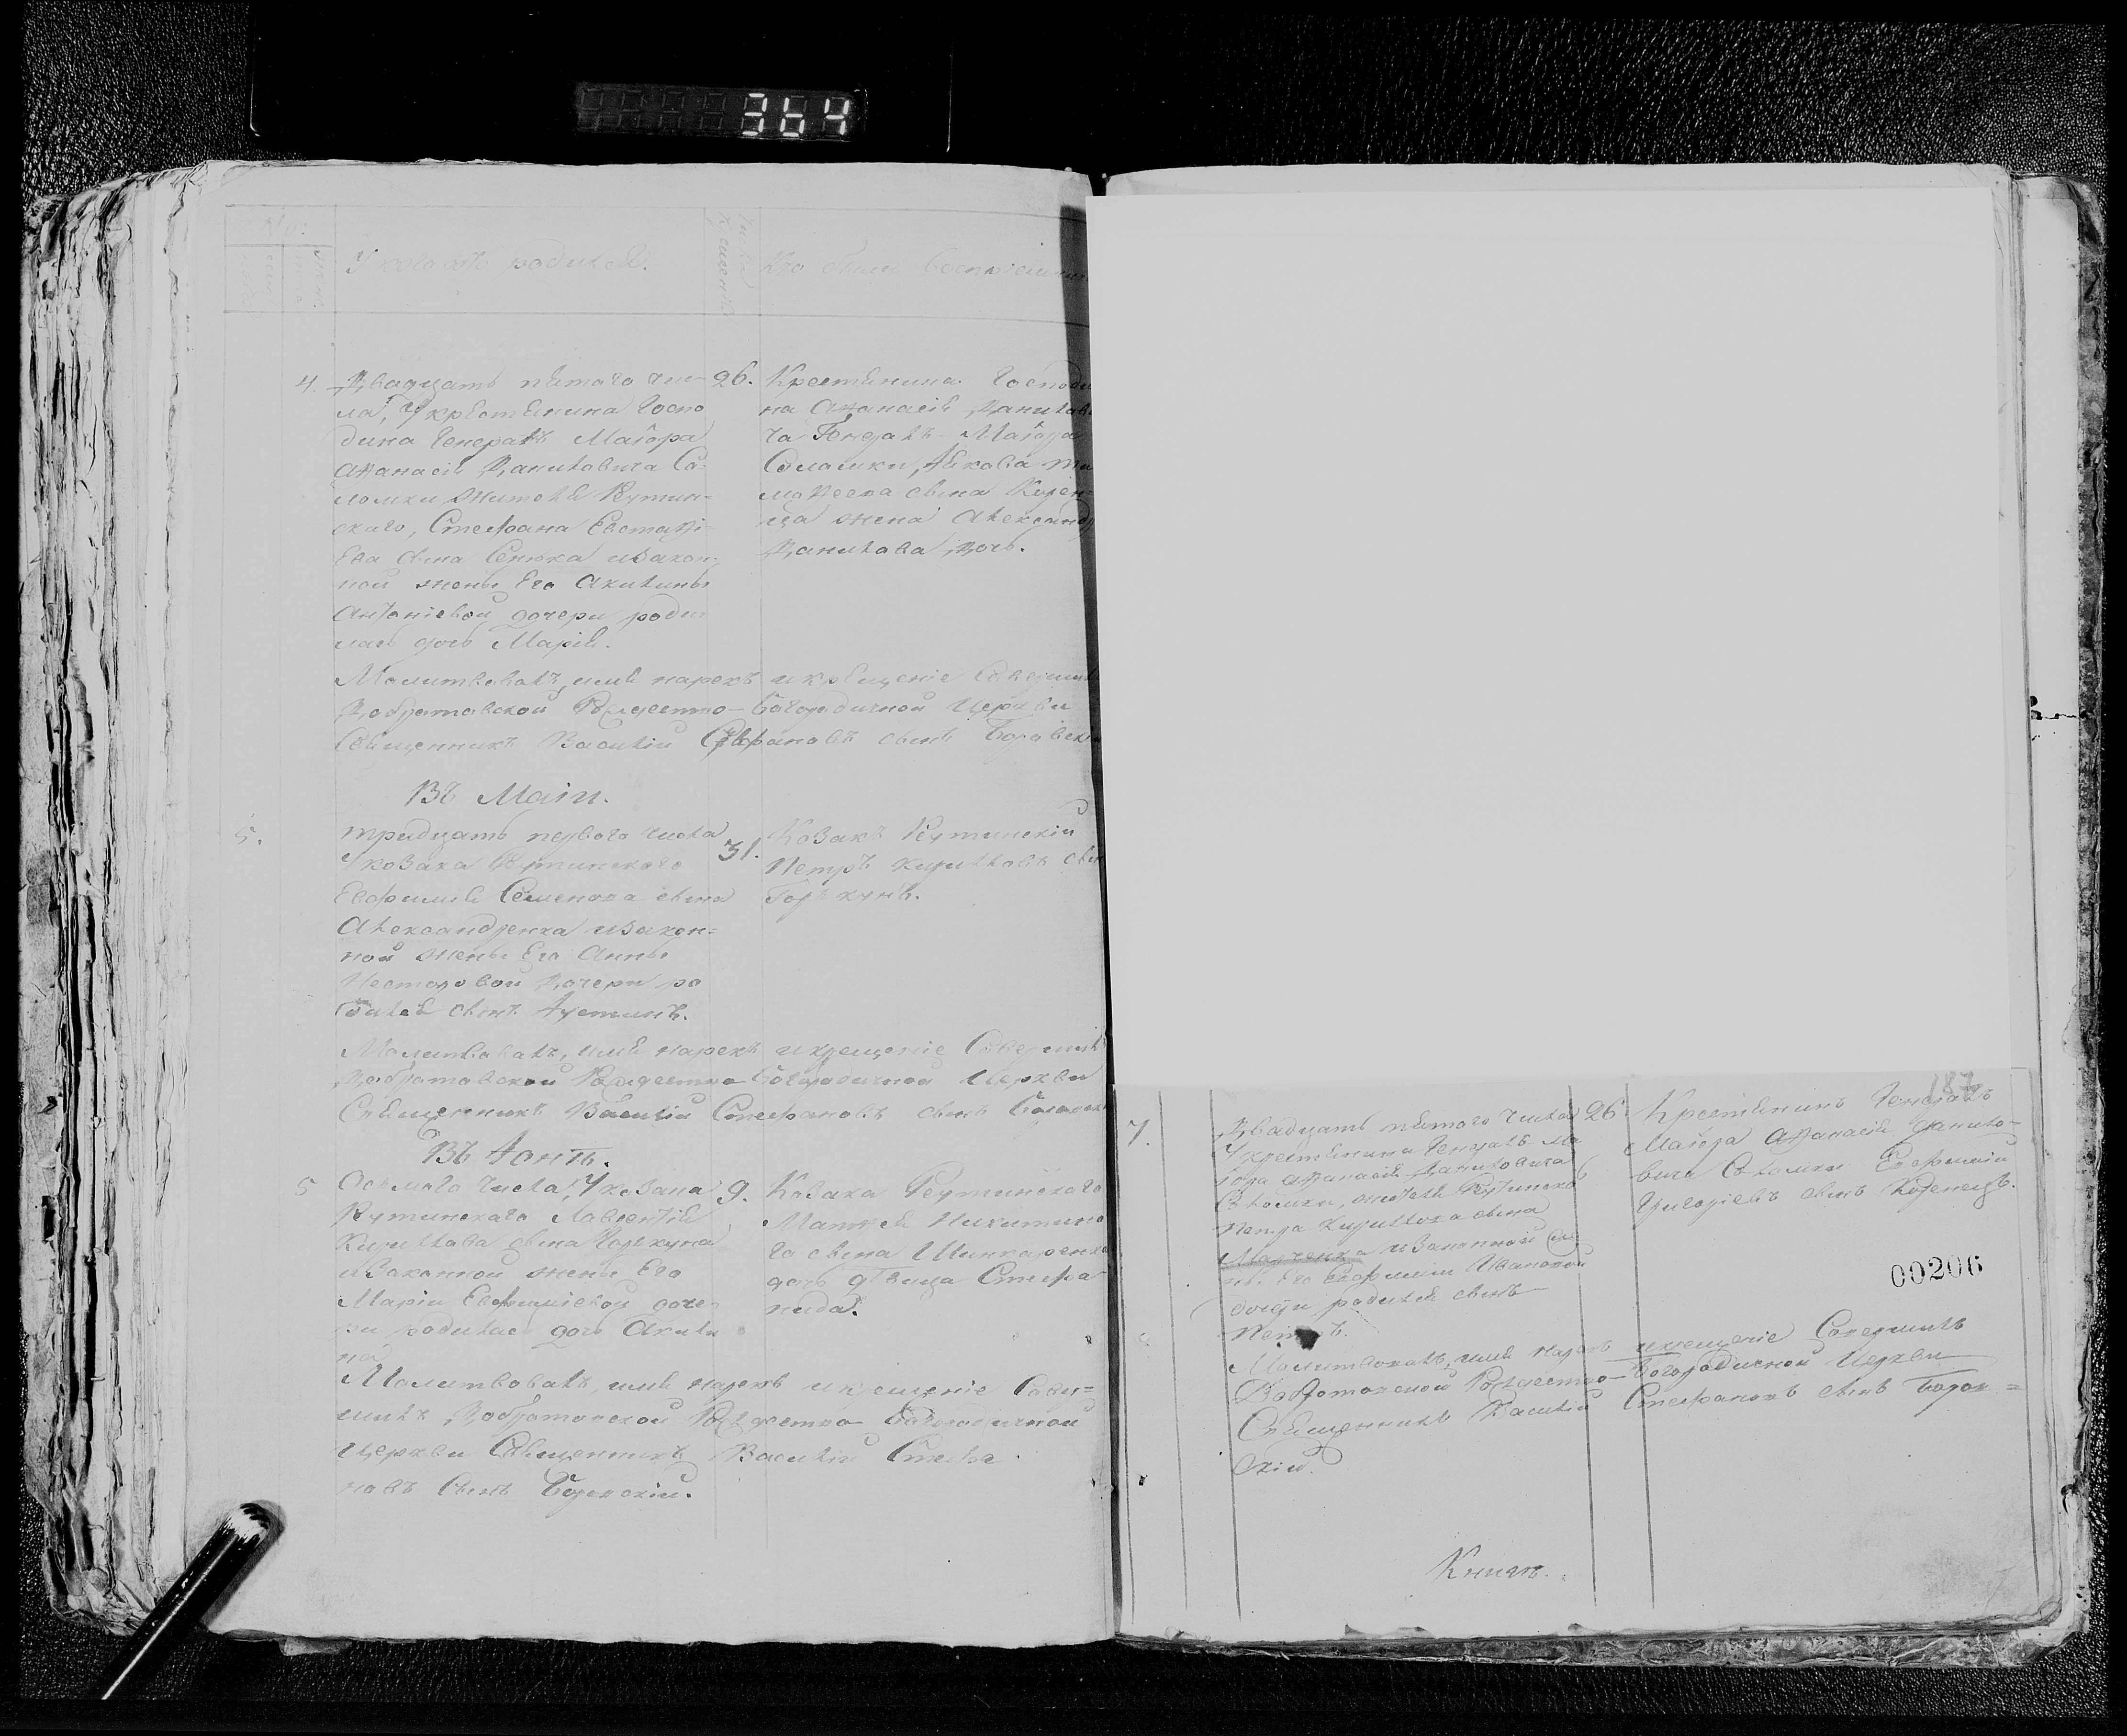 364
У кого кто родился.
Числа крещенія
Кто были воспріемни
4. Двадцать пятого чис- 26.
ла, У крестянина Госпо
дина Генералъ Маіора
Афанасія Даниловича Со-
ломки жителя Рутин-
скаго, Стефана Евстафі
ева сына Сенька изакон-
ной жены Его Акилины
Антоніевой дочери роди
лась дочь Марія.
Крестянина Господи
на Афанасія Данилови
ча Генералъ Маіора
Соломки, Якова Ти
мофеева сына Корен=
ца жена Александр
Данилова дочь.
Молитвовалъ, имя нарекъ и крещеніе Совершилъ
Добротовской Рождество-Богородичной Церкви
Священникъ Василій Стефановъ сынъ Боровскі
Въ Маіи.
5. тридцать первого числа 31.
У козака Рутинского
Евфимія Семенова сына
Александренка изакон=
ной жены Его Анны
Несторовой Дочери ро
дился сынъ Іустинъ.
Козакъ Рутинскій
Петръ Кириловъ сын
Горкунъ.
Молитвовалъ, имя нарекъ и крещеніе Совершилъ
Добротовской Рождество Богородичной Церкви
Священникъ Василій Стефановъ сынъ
Въ Іюнѣ.
5 Осьмого числа, У козака 9.
Рутинского Лаврентія
Кирилова сына Горкуна
изаконной жены Его
Маріи Евфиміевой доче
ри родилась дочь Акили
на
Козака Рутинского
Матфея Никитина
го сына Шинкаренка
дочь девица Стефа
нида.
Молитвовалъ, имя нарекъ и крещеніе Совер=
шилъ Добротовской Рождество Богородичной
Церкви Священникъ Василій Стефа
новъ Сынъ Боровскій.
187
7. Двадцать пятого числа 26
У крестянина Генералъ Ма
іора Афанасія Даниловича
Соломки, жителя Рутинског
Петра Кирилова сына
Марченка изаконной же
ны Его Евфиміи Ивановой
дочери родился сынъ
Петръ.
Крестянинъ Генералъ
Маіора Афанасія Данило-
вича Соломки Евфимій
Григоріевъ сынъ Коренецъ.
00206
Молитвовалъ, имя нарекъ и крещеніе Совершилъ
Добротовской Рождество-Богородичной Церкви
Священникъ Василій Стефановъ сынъ Боров=
скій.